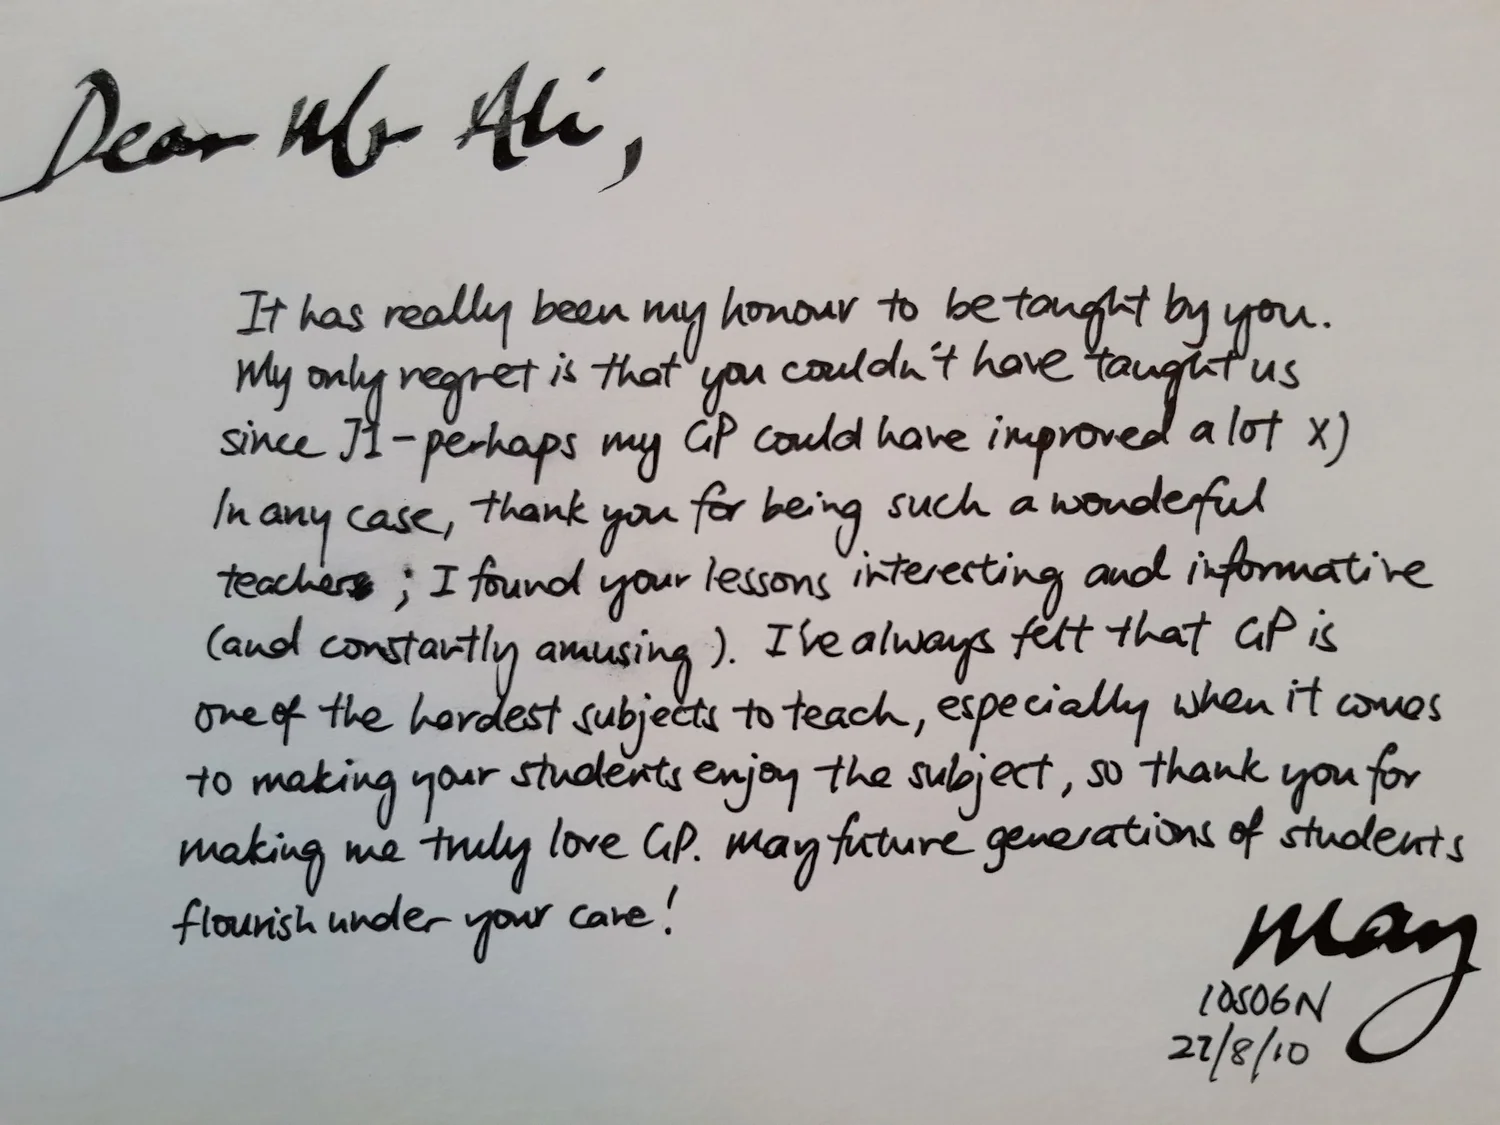 Dear Mr Ali,
It has really been my honour to be taught by you.
My only regret is that you couldn't have taught us
since J1 - perhaps my GP could have improved a lot X)
In any case, thank you for being such a wonderful
teacher ; I found your lessons interesting and informative
(and constantly amusing ). I've always felt that GP is
one of the hardest subjects to teach, especially when it comes
to making your students enjoy the subject, so thank you for
making me truly love GP. May future generations of students
flourish under your care!
May
10S06N
27/8/10